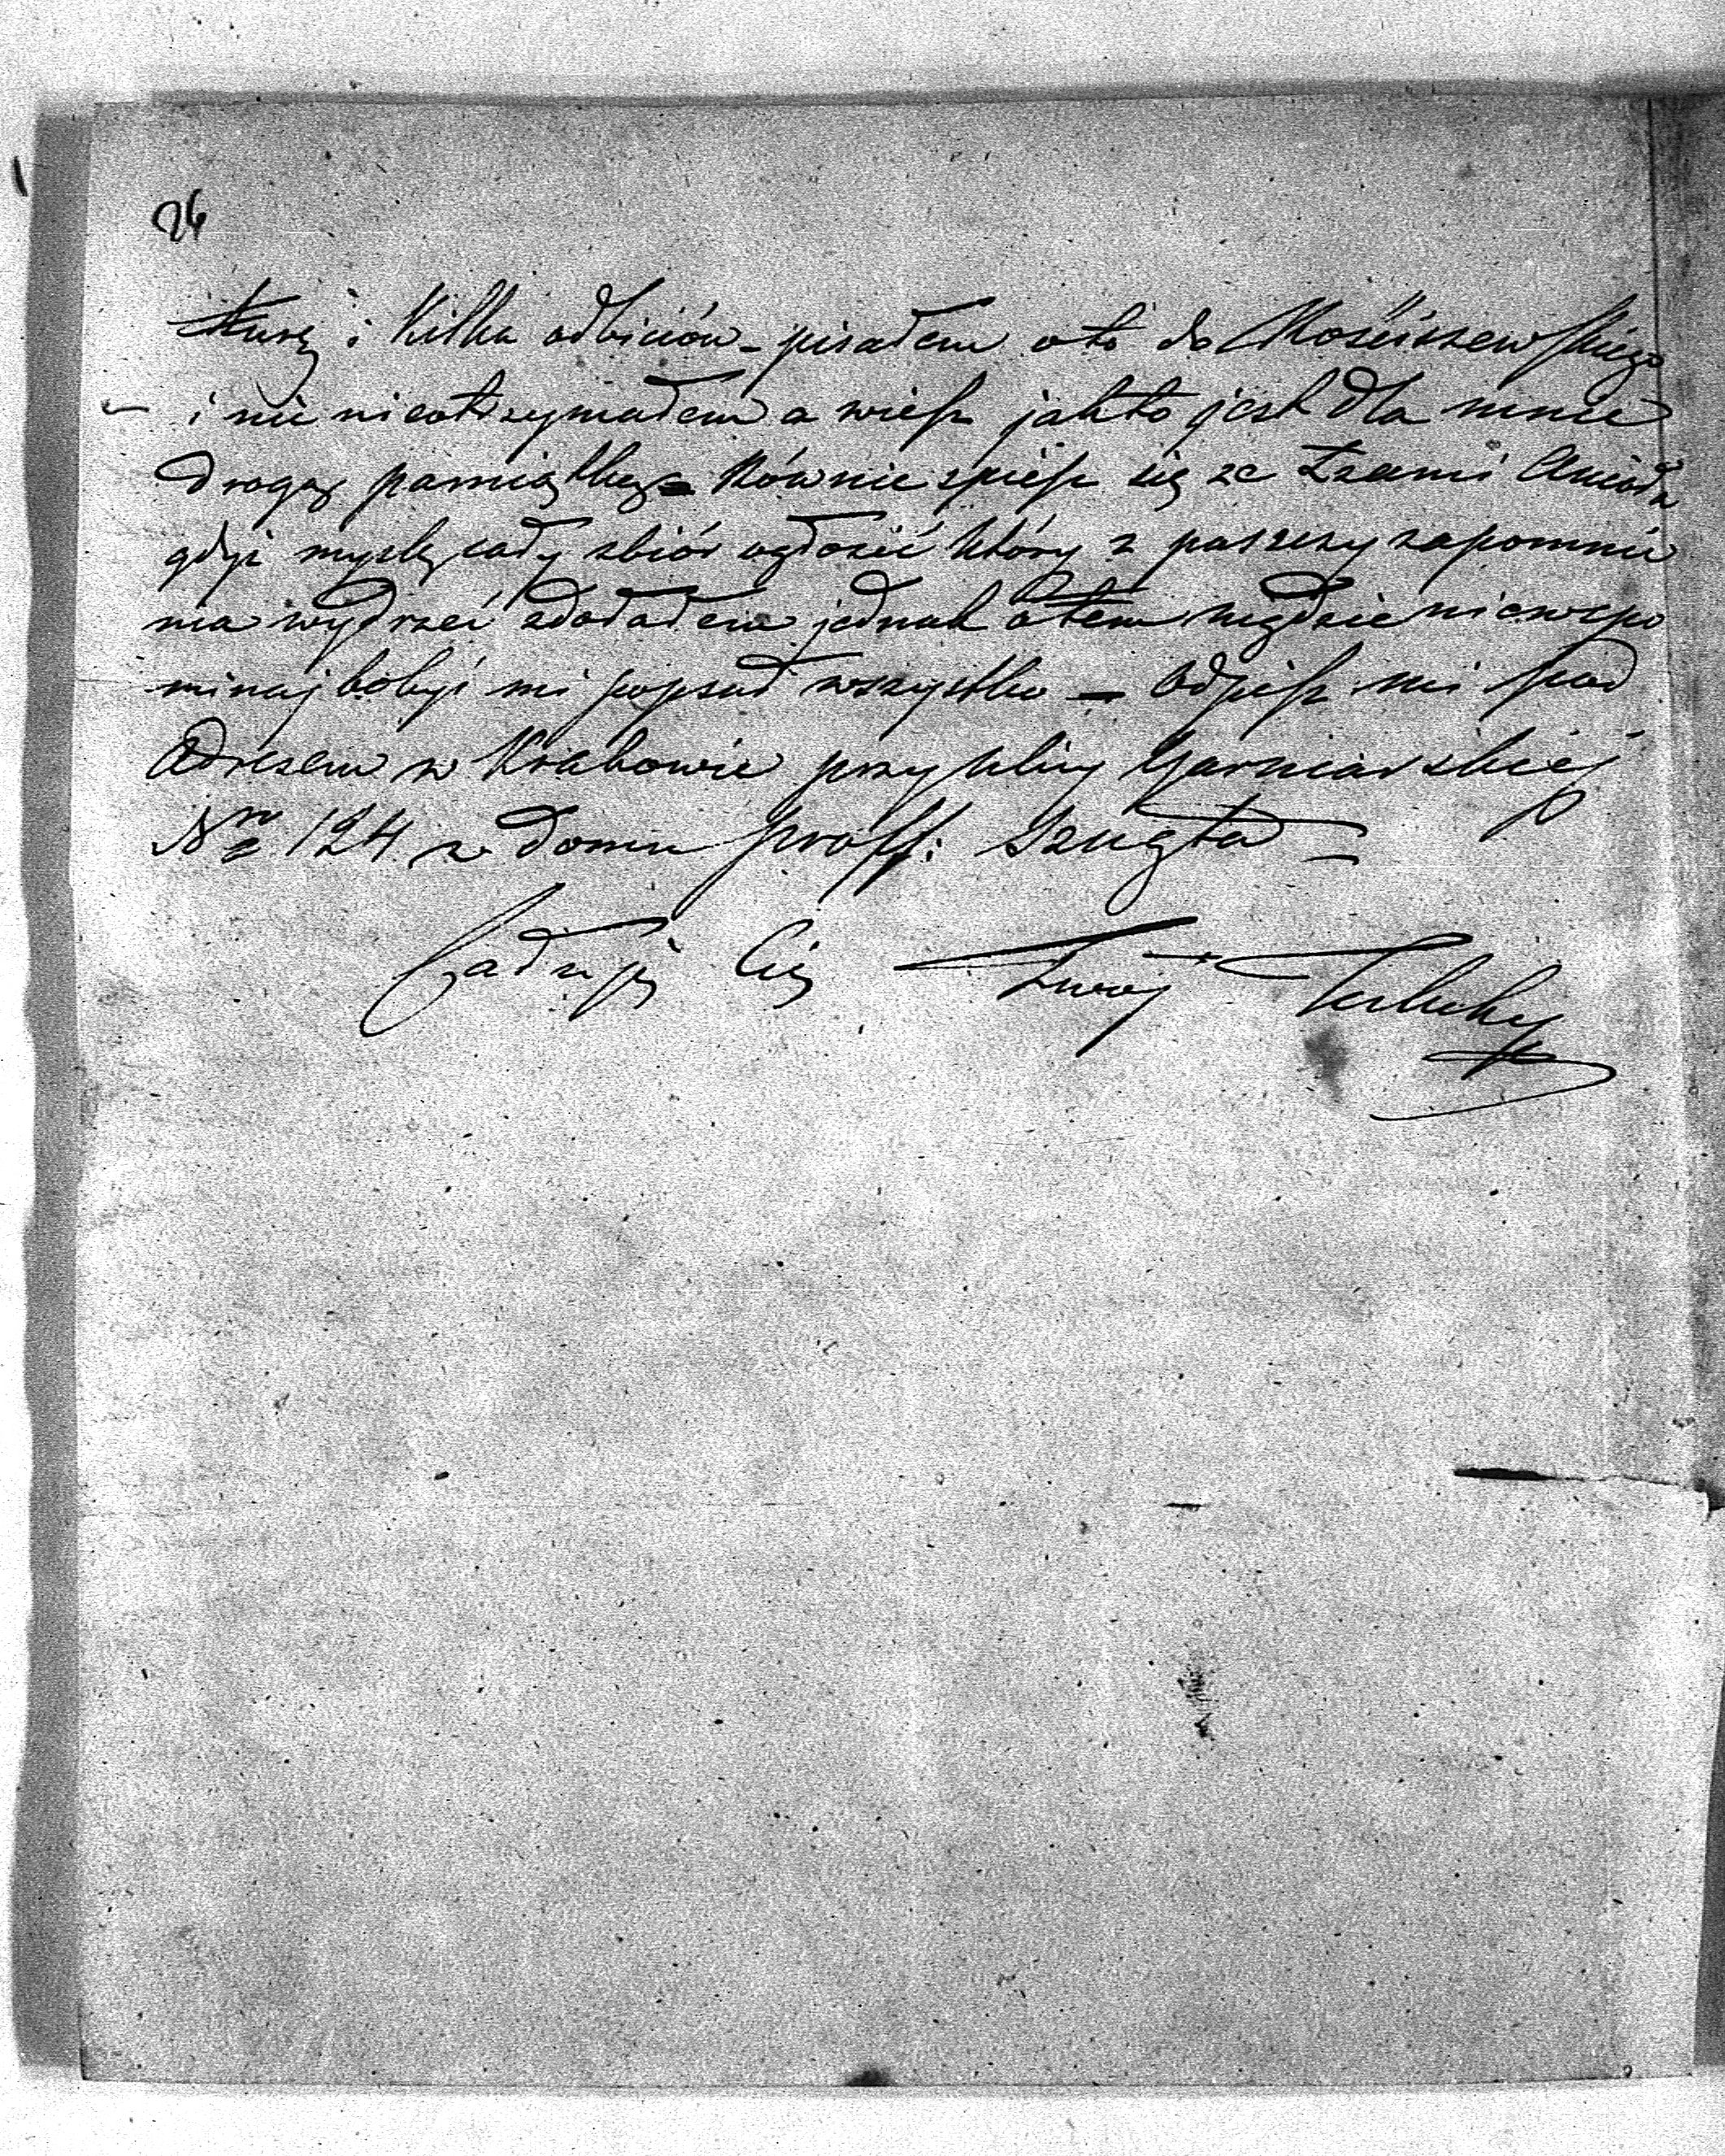 26
turę i kilka odbiciów – pisałem oto do Mościszewskiego
– i nic nieotrzymałem a wiesz jak to jest dla mnie
drogą pamiątką – Równie spiesz się ze Łzami Anioła
gdyż myslę cały zbiór ogłosić który z paszczy zapomnie
nia wydrzeć zdołałem jednak otem nigdzie niewspo
minaj bobyś mi popsuł wszystko – Odpisz mi pod
Adresem w Krakowie przy ulicy Garniarskiej
Nro 124 w domu proff:
Całuję Cię Twój